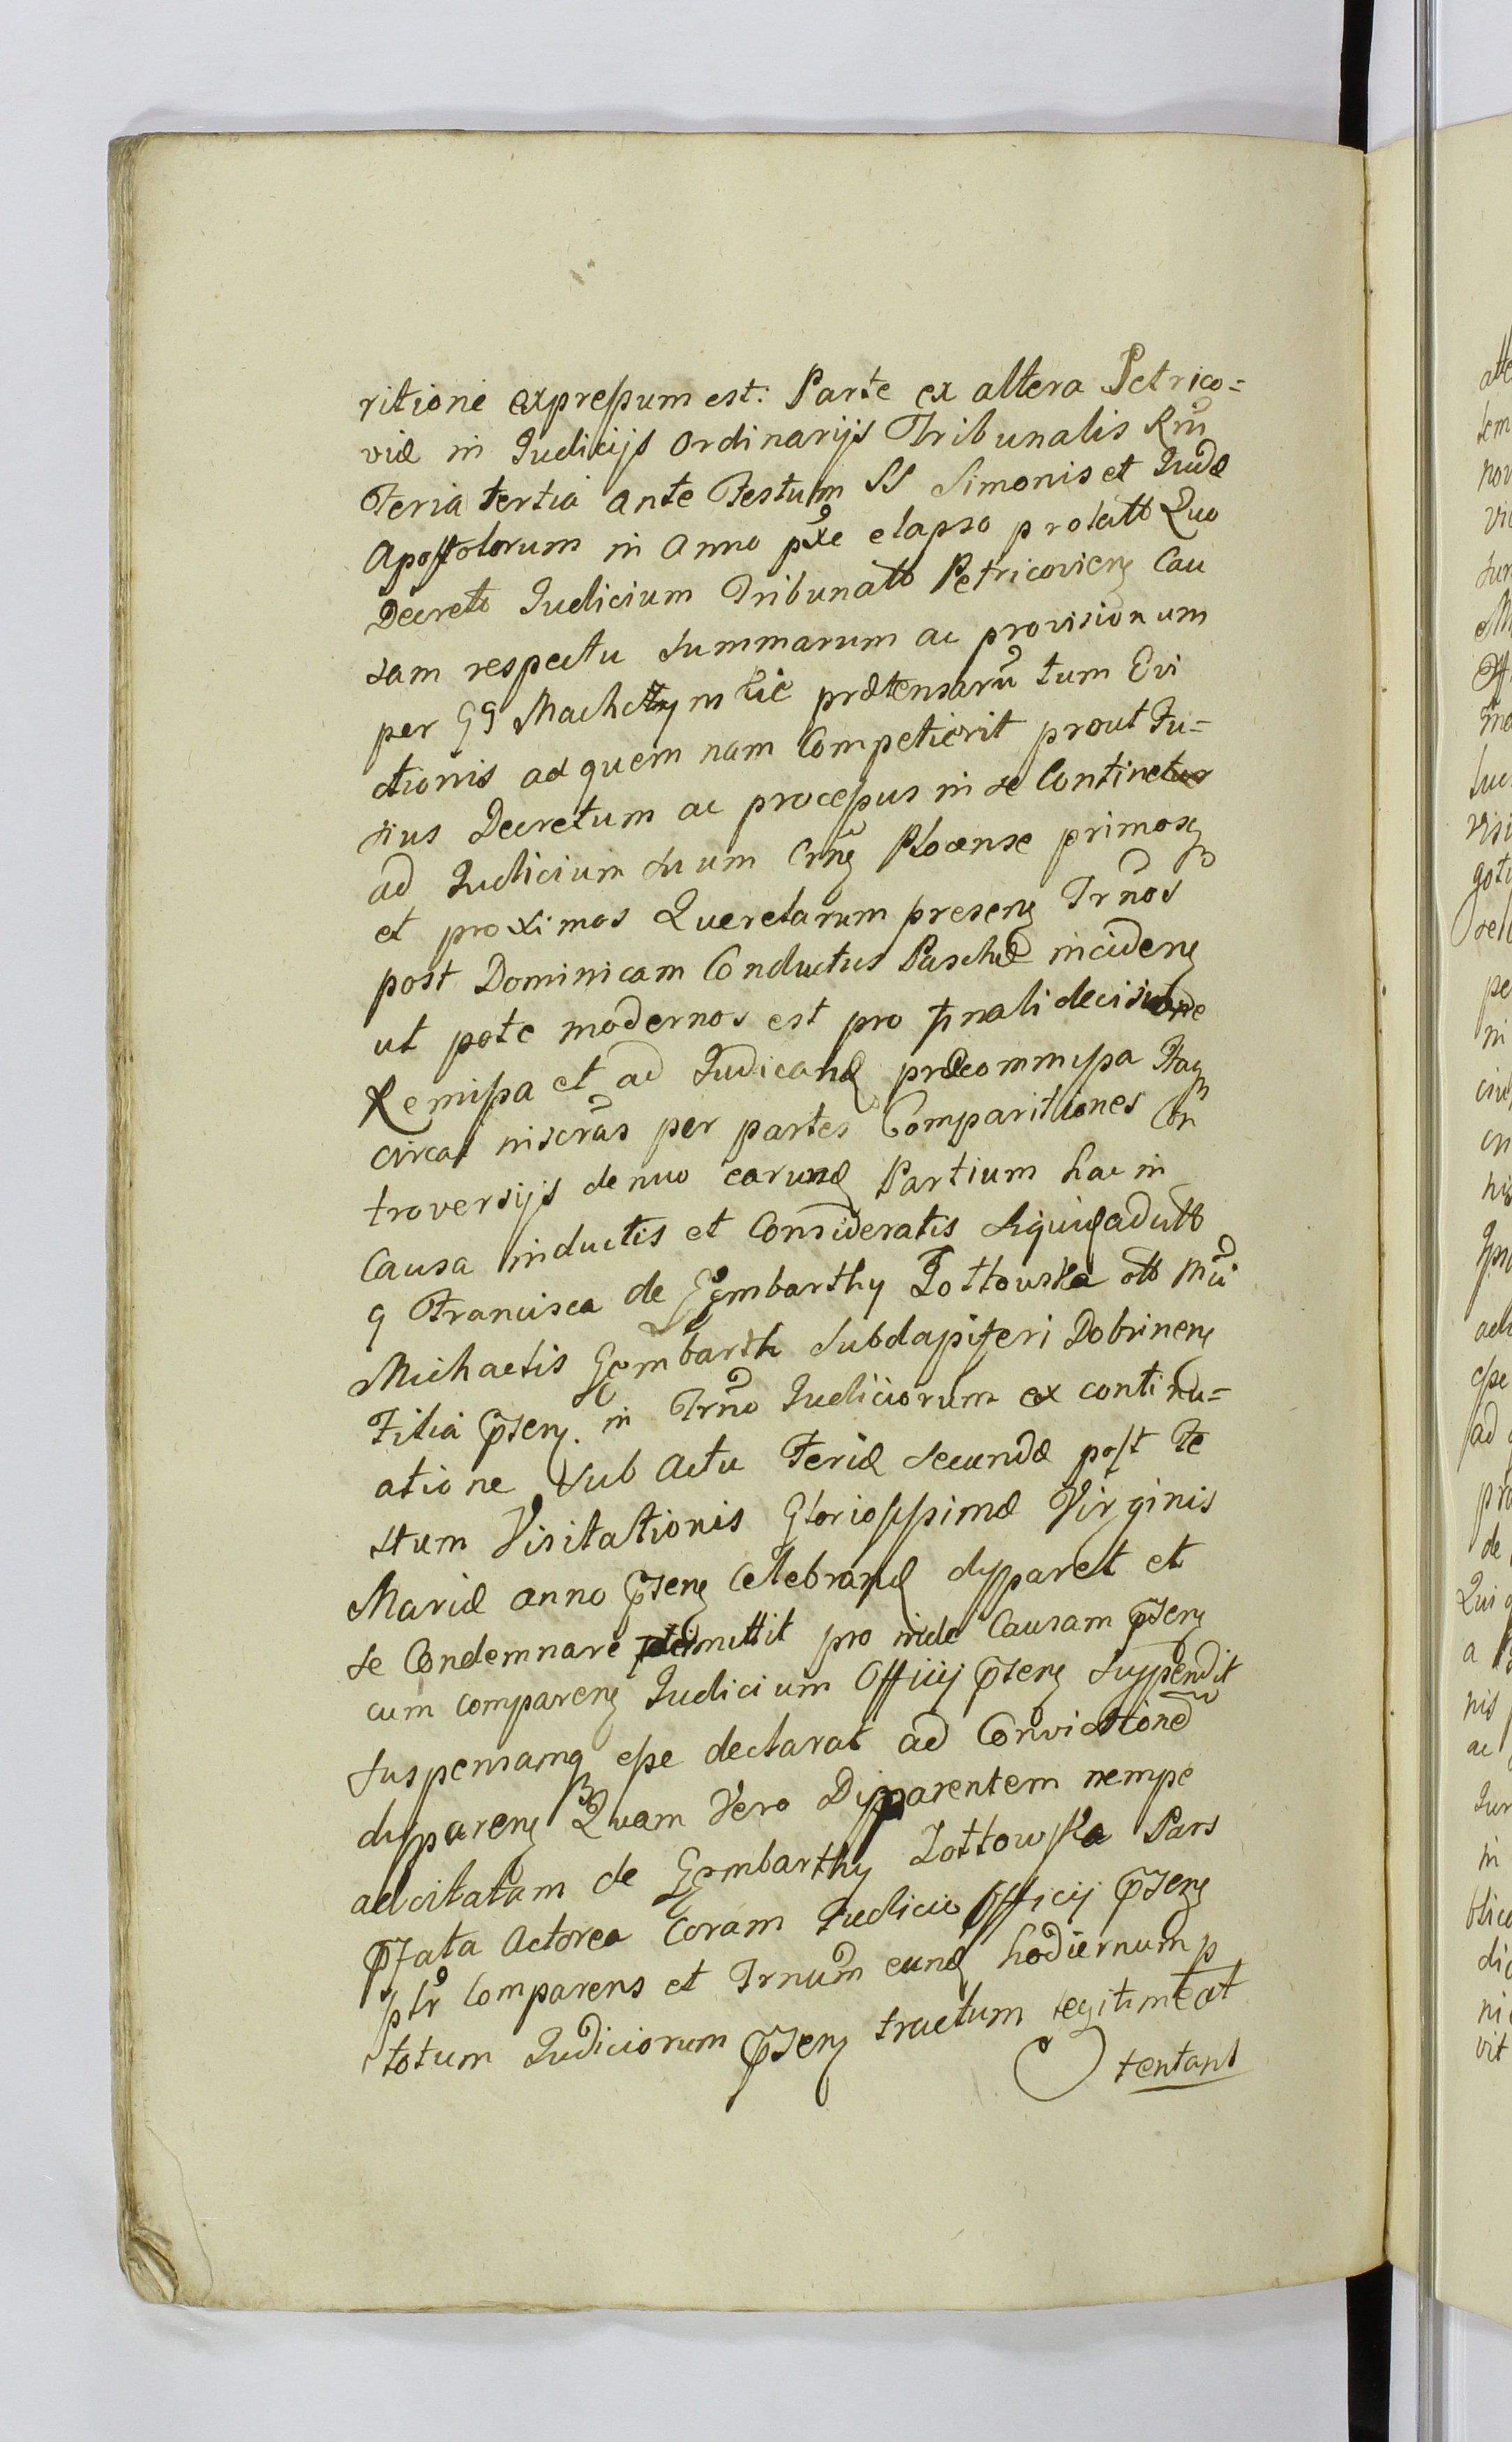 ritione expressum est: Parte ex altera Petrico=
viæ in Judicijs Ordinarijs Tribunalis Rni
Feria tertia ante Festum SS Simonis et Judæ
Apostolorum in Anno pxe elapso prolatt Quo
Decreto Judicium Tribunatt Petricovieng Cau
sam respectu Summarum ac provisionum
per GG Mach prætensarū tum Evi
ctionis ad quem nam Competierit prout Fu=
sius Decretum ac processus in se Continet
ad Judicium suum Crng Plocense primosq
et proximos Querelarum preseng Trnos
post Dominicam Conductus Paschæ incideng
ut pote modernos est pro finali decisione
Remissa et ad Judicand præcommissa Itaq
circa inscras per partes Comparitiones Con
troversijs denuo earund Partium hac in
Causa inductis et Consideratis Siquid adutt
G Francisca de Gombarthy Zottowska ott Mci
Michaelis Gombarth Subdapiferi Dobrineng
Filia pseng. in Trno Judiciorum ex continu=
atione sub Actu Feriæ Secundæ post Fe
stum Visitationis Gloriossimæ Virginis
Mariæ anno pseng Celebrand dyparet et
se Condemnare permittit pro inde Causam pseng
cum compareng Judicium Officij pseng Suspendit
suspensamq esse declarat ad Convictionē
dyspareng Quam Vero Disparentem nempe
adcitatam de Gombarthy Zottowska Pars
pfata Actorea Coram Judicio Officij pseng
pltr Comparens et Trnum eund hodiernum p
totum Judiciorum pseng tractum legitime at
tentans